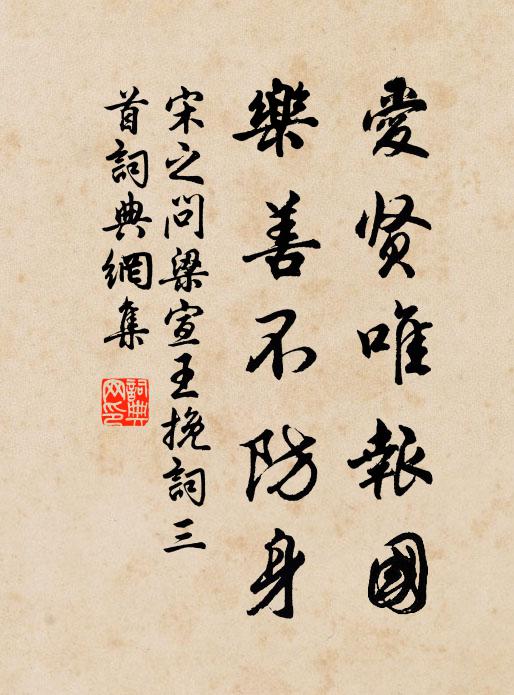 愛贤唯報國
樂善不防身
宋之问梁宣王挽詞三
首詞典網集
詞典
网印